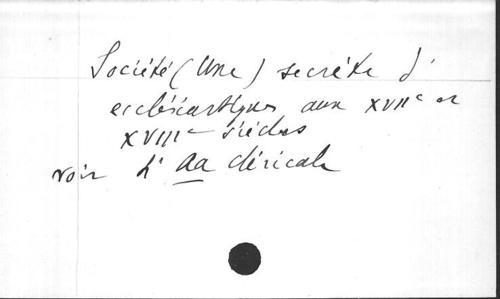 Société (Une) secrète d'
ecclésiastiques aux XVIIe et
XVIIIe siècles
voir L'Aa cléricale